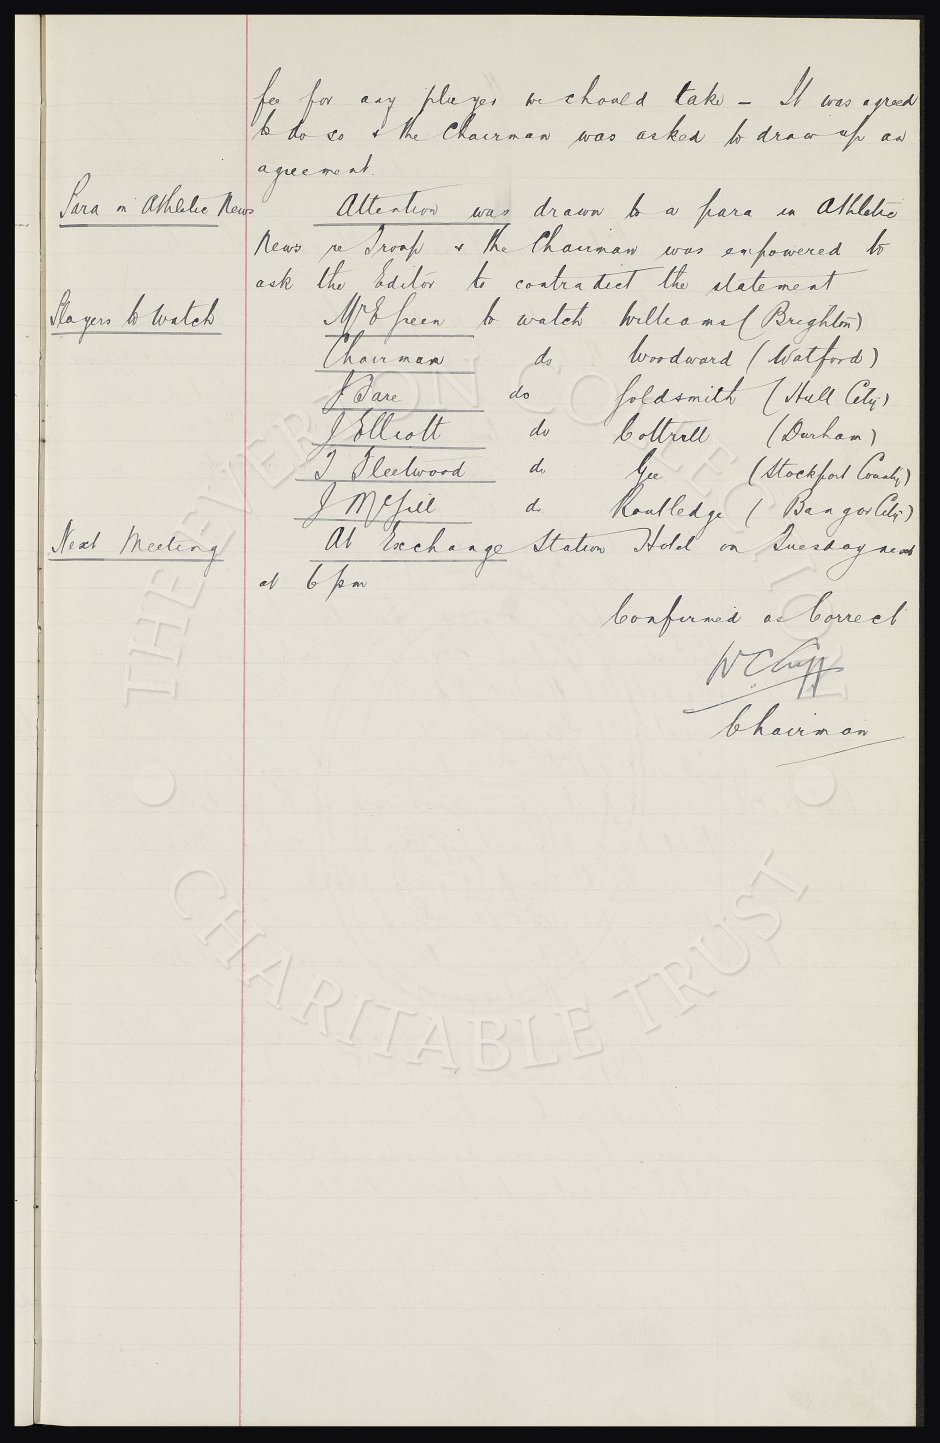 fee for any player we should take - It was agreed
to do so & the Chairman was asked to draw up an
agreement.
Para in Athletic News Attention was drawn to a para in Athletic
News re Troup & the Chairman was empowered to
ask the Editor to contradict the statement
Players to Watch Mr E Green to watch Williams (Brighton)
Chairman do Woodward (Watford)
J Bare do Goldsmith (Hull City)
J Elliott do Cottrell (Durham)
T Fleetwood do Gee (Stockport County)
J McGill do Routledge (Bangor City)
Next Meeting At Exchange Station Hotel on Tuesday next
at 6 pm
Confirmed as Correct
W C Cuff
Chairman
THE EVERTON COLLECTION
CHARITABLE TRUST